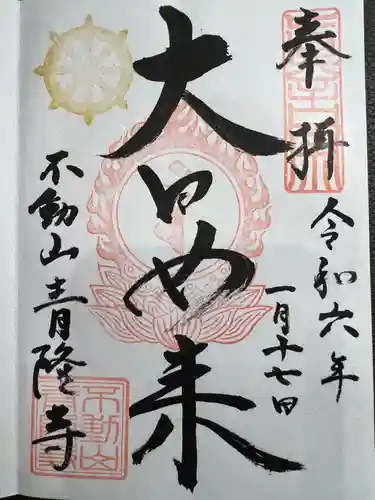 奉拝
令和六年
一月十七日
大日如来
不動山青隆寺